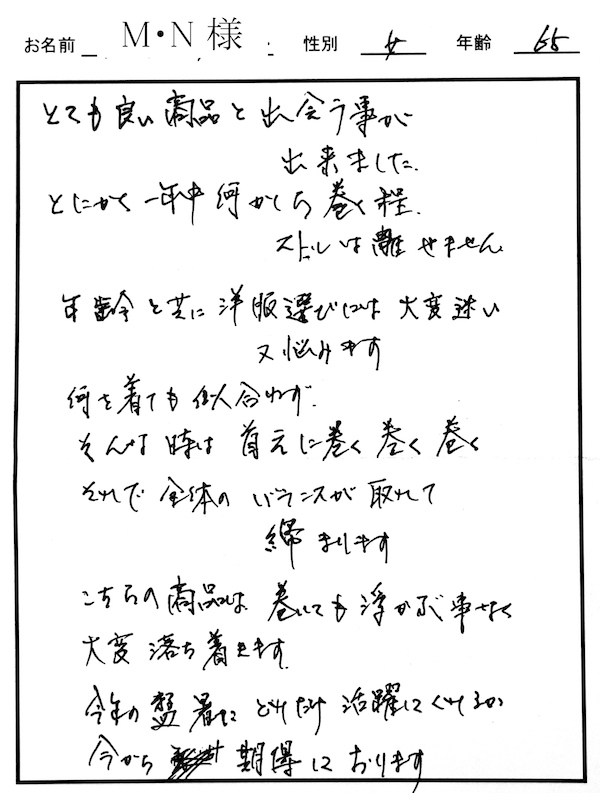 お名前 M・N 様 性別 女 年齢 65
とても良い商品と出会う事が
出来ました.
とにかく一年中何かしら巻く程.
ストールは離せません.
年齢と共に洋服選びには大変迷い
又悩みます
何を着ても似合わず.
そんな時は首元に巻く巻く巻く
それで全体のバランスが取れて
締まります
こちらの商品は巻いても浮かぶ事なく
大変落ち着きます.
今年の猛暑にどれだけ活躍してくれるか
今から 期得しております